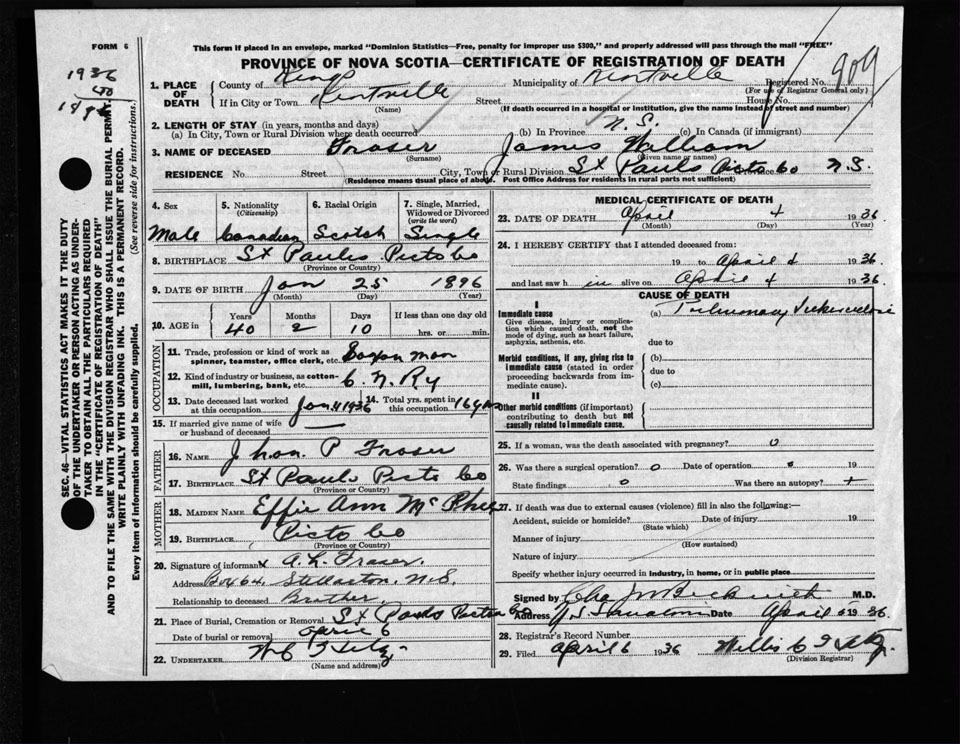 FORM 6
1936
40
1896
909
This form if placed in an envelope, marked "Dominion Statistics—Free, penalty for improper use $300," and properly addressed will pass through the mail "FREE"
PROVINCE OF NOVA SCOTIA—CERTIFICATE OF REGISTRATION OF DEATH
1. PLACE OF DEATH County of Kings Municipality of Kentville Registered No.
(For use of Registrar General only)
If in City or Town Kentville Street House No.
(Name) (If death occurred in a hospital or institution, give the name instead of street and number)
2. LENGTH OF STAY (in years, months and days)
(a) In City, Town or Rural Division where death occurred (b) In Province N.S. (c) In Canada (if immigrant)
3. NAME OF DECEASED Fraser James William
(Surname) (Given name or names)
RESIDENCE No. Street City, Town or Rural Division St Pauls Picto Co N.S.
(Residence means usual place of abode. Post Office Address for residents in rural parts not sufficient)
4. Sex 5. Nationality (Citizenship) 6. Racial Origin 7. Single, Married, Widowed or Divorced (write the word)
Male Canadian Scotch Single
8. BIRTHPLACE St Pauls Picto Co
(Province or Country)
9. DATE OF BIRTH Jan 25 1896
(Month) (Day) (Year)
10. AGE in Years Months Days If less than one day old
40 2 10 hrs. or min.
OCCUPATION
11. Trade, profession or kind of work as spinner, teamster, office clerk, etc. man
12. Kind of industry or business, as cotton-mill, lumbering, bank, etc. C. N. Ry
13. Date deceased last worked at this occupation Jan 1936 14. Total yrs. spent in this occupation 16 yrs
15. If married give name of wife or husband of deceased
FATHER
16. NAME Jhon. P Fraser
17. BIRTHPLACE St Pauls Picto Co
(Province or Country)
MOTHER
18. MAIDEN NAME Effie Ann McPhee
19. BIRTHPLACE Picto Co
(Province or Country)
20. Signature of informant A. L. Fraser
Address Box 64. Stellarton, N.S.
Relationship to deceased Brother
21. Place of Burial, Cremation or Removal St Pauls Picton Co
Date of burial or removal April 6
22. UNDERTAKER
(Name and address)
MEDICAL CERTIFICATE OF DEATH
23. DATE OF DEATH April 4 1936
(Month) (Day) (Year)
24. I HEREBY CERTIFY that I attended deceased from:
19 to April 4 1936.
and last saw h im alive on April 4 1936.
CAUSE OF DEATH
I
Immediate cause
Give disease, injury or complication which caused death, not the mode of dying, such as heart failure, asphyxia, asthenia, etc.
(a) Pulmonary Tuberculosis
due to
Morbid conditions, if any, giving rise to immediate cause (stated in order proceeding backwards from immediate cause).
(b)
due to
(c)
II
Other morbid conditions (if important) contributing to death but not causally related to immediate cause.
25. If a woman, was the death associated with pregnancy? o
26. Was there a surgical operation? o Date of operation 19
State findings o Was there an autopsy?
27. If death was due to external causes (violence) fill in also the following:—
Accident, suicide or homicide? Date of injury 19
(State which)
Manner of injury
(How sustained)
Nature of injury
Specify whether injury occurred in industry, in home, or in public place
Signed by M.D.
Address Date April 1936
28. Registrar's Record Number
29. Filed April 6 1936 Willis C
(Division Registrar)
SEC. 46—VITAL STATISTICS ACT MAKES IT THE DUTY
OF THE UNDERTAKER OR PERSON ACTING AS UNDER-
TAKER TO OBTAIN ALL THE PARTICULARS REQUIRED
IN THE "CERTIFICATE OF REGISTRATION OF DEATH"
AND TO FILE THE SAME WITH THE DIVISION REGISTRAR WHO SHALL ISSUE THE BURIAL PERMIT.
WRITE PLAINLY WITH UNFADING INK. THIS IS A PERMANENT RECORD.
Every item of Information should be carefully supplied. (See reverse side for instructions.)